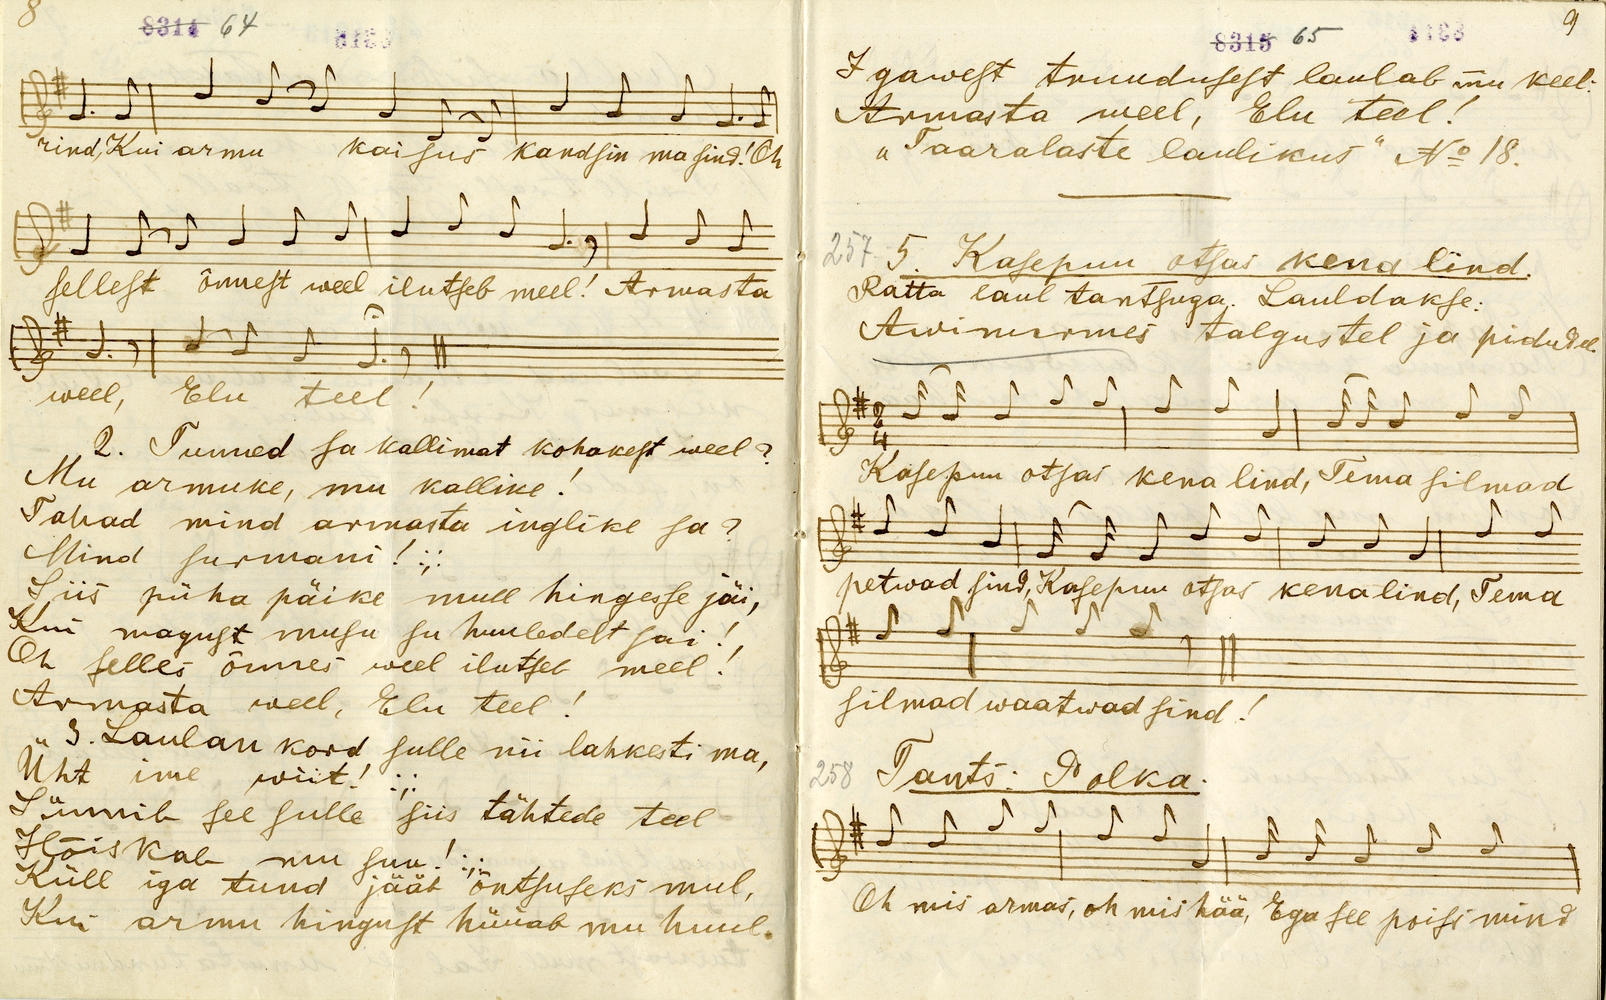 8
8314 64
rind, Kui armu kaisus kandsin ma sind! Oh
sellest õnnest weel ilutseb meel! Armasta
weel, Elu teel!
2. Tunned sa kallimat kohakest weel?
Mu armuke, mu kallike!
Tahad mind armasta inglike sa?
Mind surmani! :,:
Siis püha päike mull hingesse jäi,
Kui magust musu su huuledelt sai!
Oh selles õnnes weel ilutseb meel!
Armasta weel, Elu teel!
3. Laulan kord sulle nii lahkesti ma,
Üht ime wiit! :,:
Sünnib see sulle siis tähtede teel
Hõiskab mu suu! :,:
Küll iga tund jääb õntsuseks mul,
Kui armu hingust hüüab mu huul.
9
8315 65
Igawest truudusest laulab mu keel:
Armasta weel, Elu teel!
„Taaralaste laulikus“ No 18.
257 5. Kasepuu otsas kena lind.
Ratta laul tantsuga. Lauldakse:
Awinurmes talgustel ja pidudel.
2
4
Kasepuu otsas kena lind, Tema silmad
petwad sind, Kasepuu otsas kena lind, Tema
silmad waatwad sind!
258 Tants: Polka.
Oh mis armas, oh mis hää, Ega see poiss mind